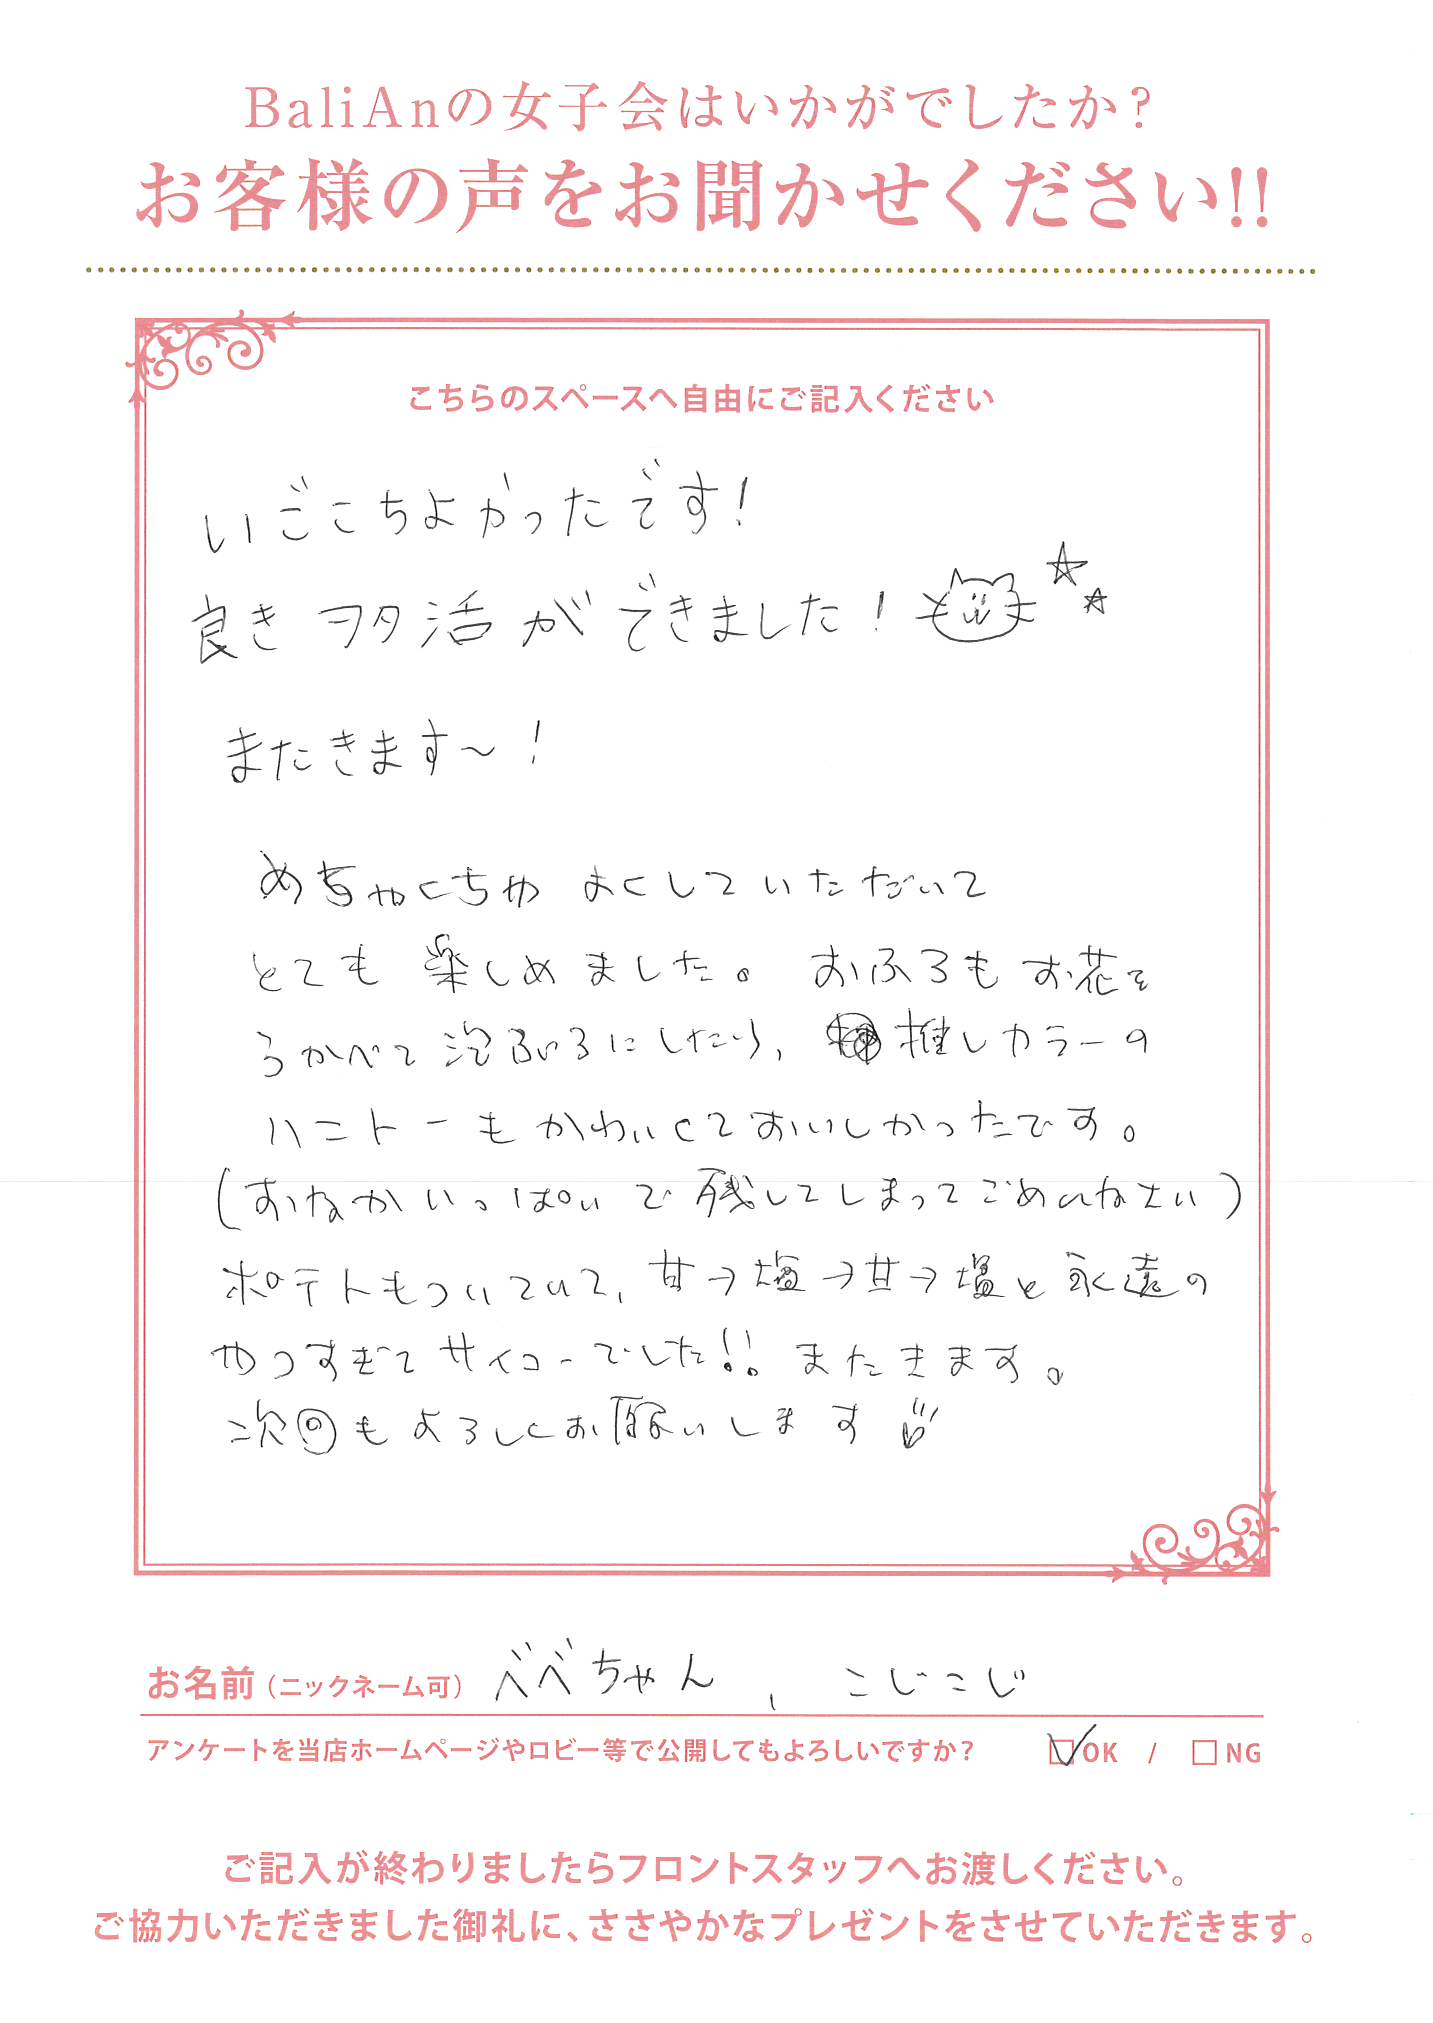 BaliAnの女子会はいかがでしたか?
お客様の声をお聞かせください!!
こちらのスペースへ自由にご記入ください
いごこちよかったです!
良きヲタ活ができました!
またきます〜!
めちゃくちゃよくしていただいて
とても楽しめました。おふろもお花を
うかべて泡ぶろにしたり、推しカラーの
ハニトーもかわいくておいしかったです。
(おなかいっぱいで残してしまってごめんなさい)
ポテトもついていて、甘→塩→甘→塩と永遠の
やつすぎてサイコーでした!!またきます。
次回もよろしくお願いします
お名前(ニックネーム可) べべちゃん、こじこじ
アンケートを当店ホームページやロビー等で公開してもよろしいですか? ☑OK / □NG
ご記入が終わりましたらフロントスタッフへお渡しください。
ご協力いただきました御礼に、ささやかなプレゼントをさせていただきます。